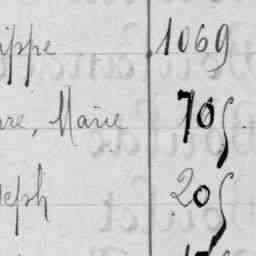 ippe 1069
re, Marie 705
seph 205